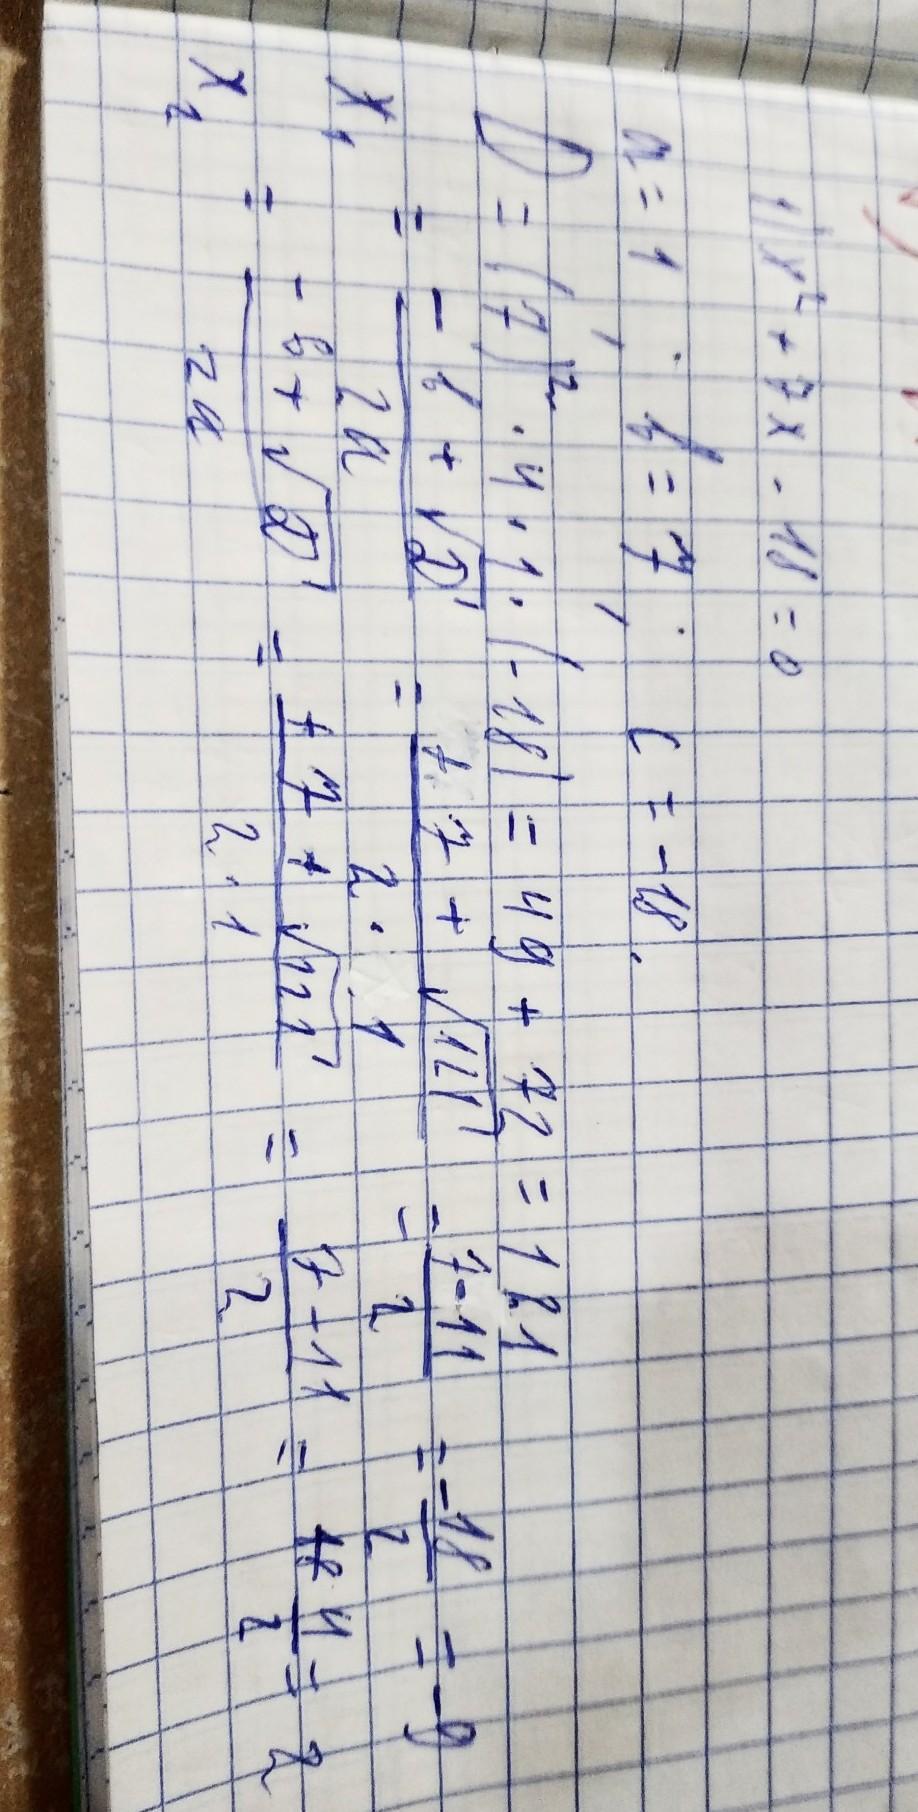 1) x² + 7x - 18 = 0
a = 1, b = 7, c = -18.
D = (7)² · 4 · 1 · (-18) = 49 + 72 = 121
x₁ = -b + √D / 2a = + 7 + √121 / 2 · 1 = -7-11 / 2 = -18 / 2 = -9
x₂ = -b + √D / 2a = + 7 + √121 / 2 · 1 = 7-11 / 2 = 4 / 2 = 2